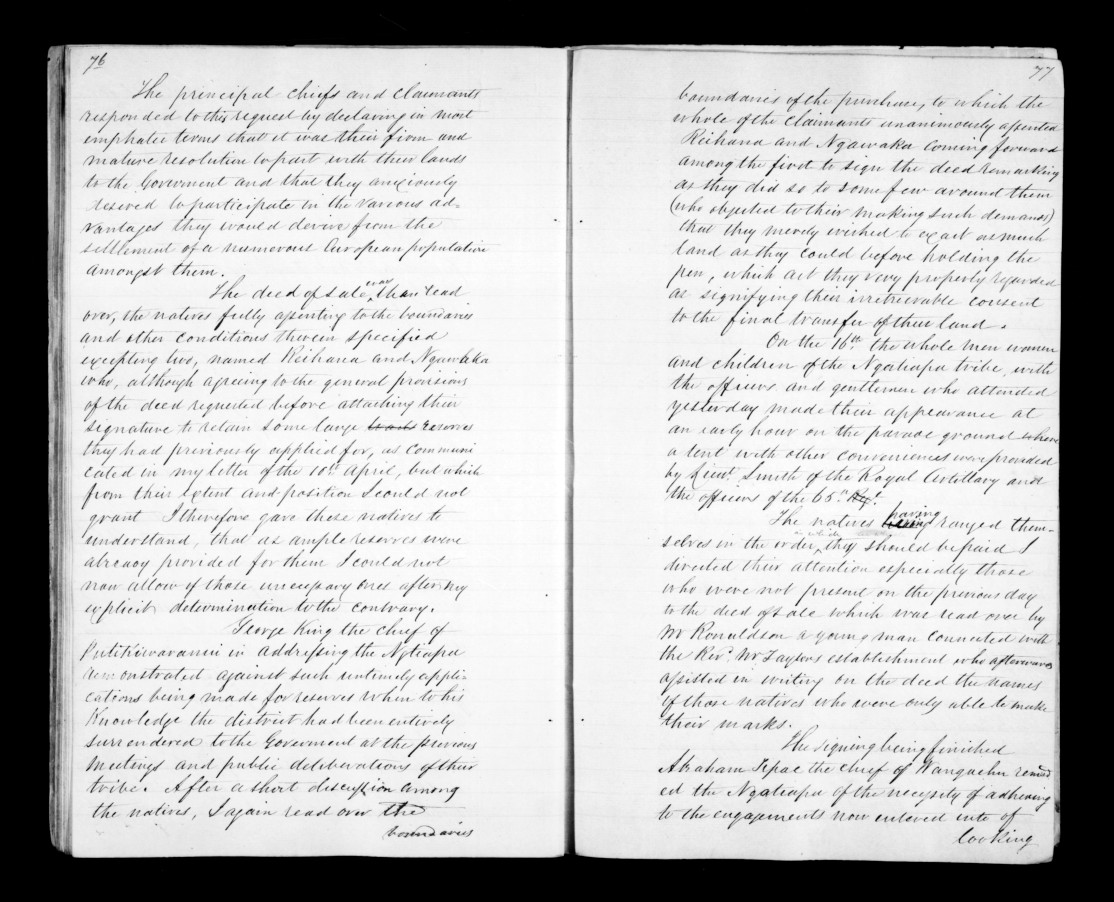 76
The principal chiefs and claimants
responded to this request by declaring in most
emphatic terms that it was their firm and
mature resolution to part with their lands
to the Goverment and that they anxiously
to participate in the various ad-
vantages they would derive from the
settlement of a numerous European population
amongst them.
The deed of sale was then read
over, the natives fully assenting to the boundaries
and other conditions therein specified
excepting two, named Reihana and Ngawaka
who, although agreeing to the general provisions
of the deed requested before attaching their
signature to retain some large reserves
they had previously applied for, as communi
cated in my letter of the 10th April, but which
from their extent and position I could not
grant I therefore gave these natives to
understand, that as ample reserves were
already provided for them I could not
now allow of those unnecessary ones after my
explicit determination to the contrary.
George King the chief of
in addressing the Ngteapa
remonstrated against such untimely appli-
cations being made for reserves when to his
Knowledge the district had been entirely
surrendered to the Goverment at the previous
meetings and public deliberations of their
tribe. After a short discussion among
the natives, I again read over the
boundaries
77
boundaries of the purchase, to which the
whole of the claimants unanimously assented
Reihana and Ngawaka coming forward
among the first to sign the deed remarking
as they did so to some few around them
(who objected to their making such demands)
that they merely wished to exact as much
land as they could before holding the
pen, which act they very properly regarded
as signifying their irretrievable consent
to the final transfer of their land.
On the 16th the whole men women
and children of the Ngatiapa tribe, with
the officers and gentlemen who attended
yesterday made their appearance at
an early hour on the parade ground where
a tent with other conveniences were provided
by Lieut. Smith of the Royal Artillary and
the officers of the 65th Regt.
The natives having ranged them-
selves in the order in which they should be paid I
directed their attention especially those
who were not present on the previous day
to the deed of sale which was read over by
Mr Ronaldson a young man connected with
the Revd. Mr Taylors establishment who afterwards
assisted in writing on the deed the names
of those natives who were only able to make
their marks.
The signing being finished
Abraham Ipae the chief of Wangaehu remind
ed the Ngatiapa of the necessity of adhering
to the engagements now entered into of
looking